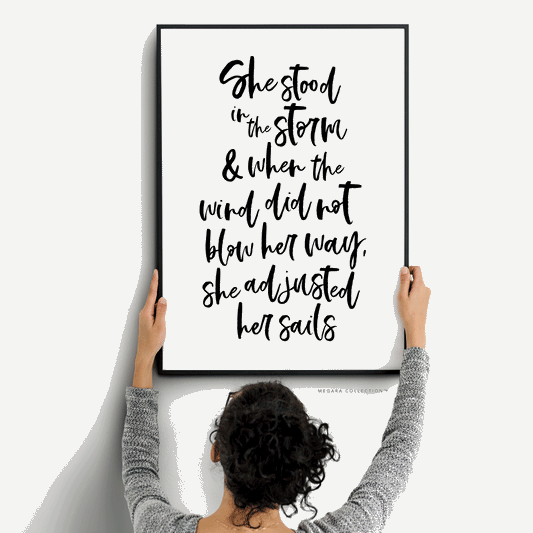 She stood
in the storm
& when the
wind did not
blow her way,
she adjusted
her sails
MEGARA COLLECTION™